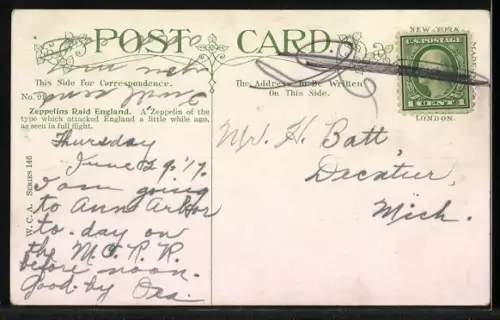 POST CARD.
NEW YORK
U.S. POSTAGE
1 CENT 1
LONDON
MADE
This Side For Correspondence.
The Address To Be Written
On This Side.
No.
Zeppelins Raid England. A Zeppelin of the
type which attacked England a little while ago,
as seen in full flight.
W. C. A. SERIES 146
Thursday
June 29 '17.
I am going
to Ann Arbor
to-day on
the M.C.R.R.
before noon.
Good-by
Mr. H. Batt,
Decatur,
Mich.